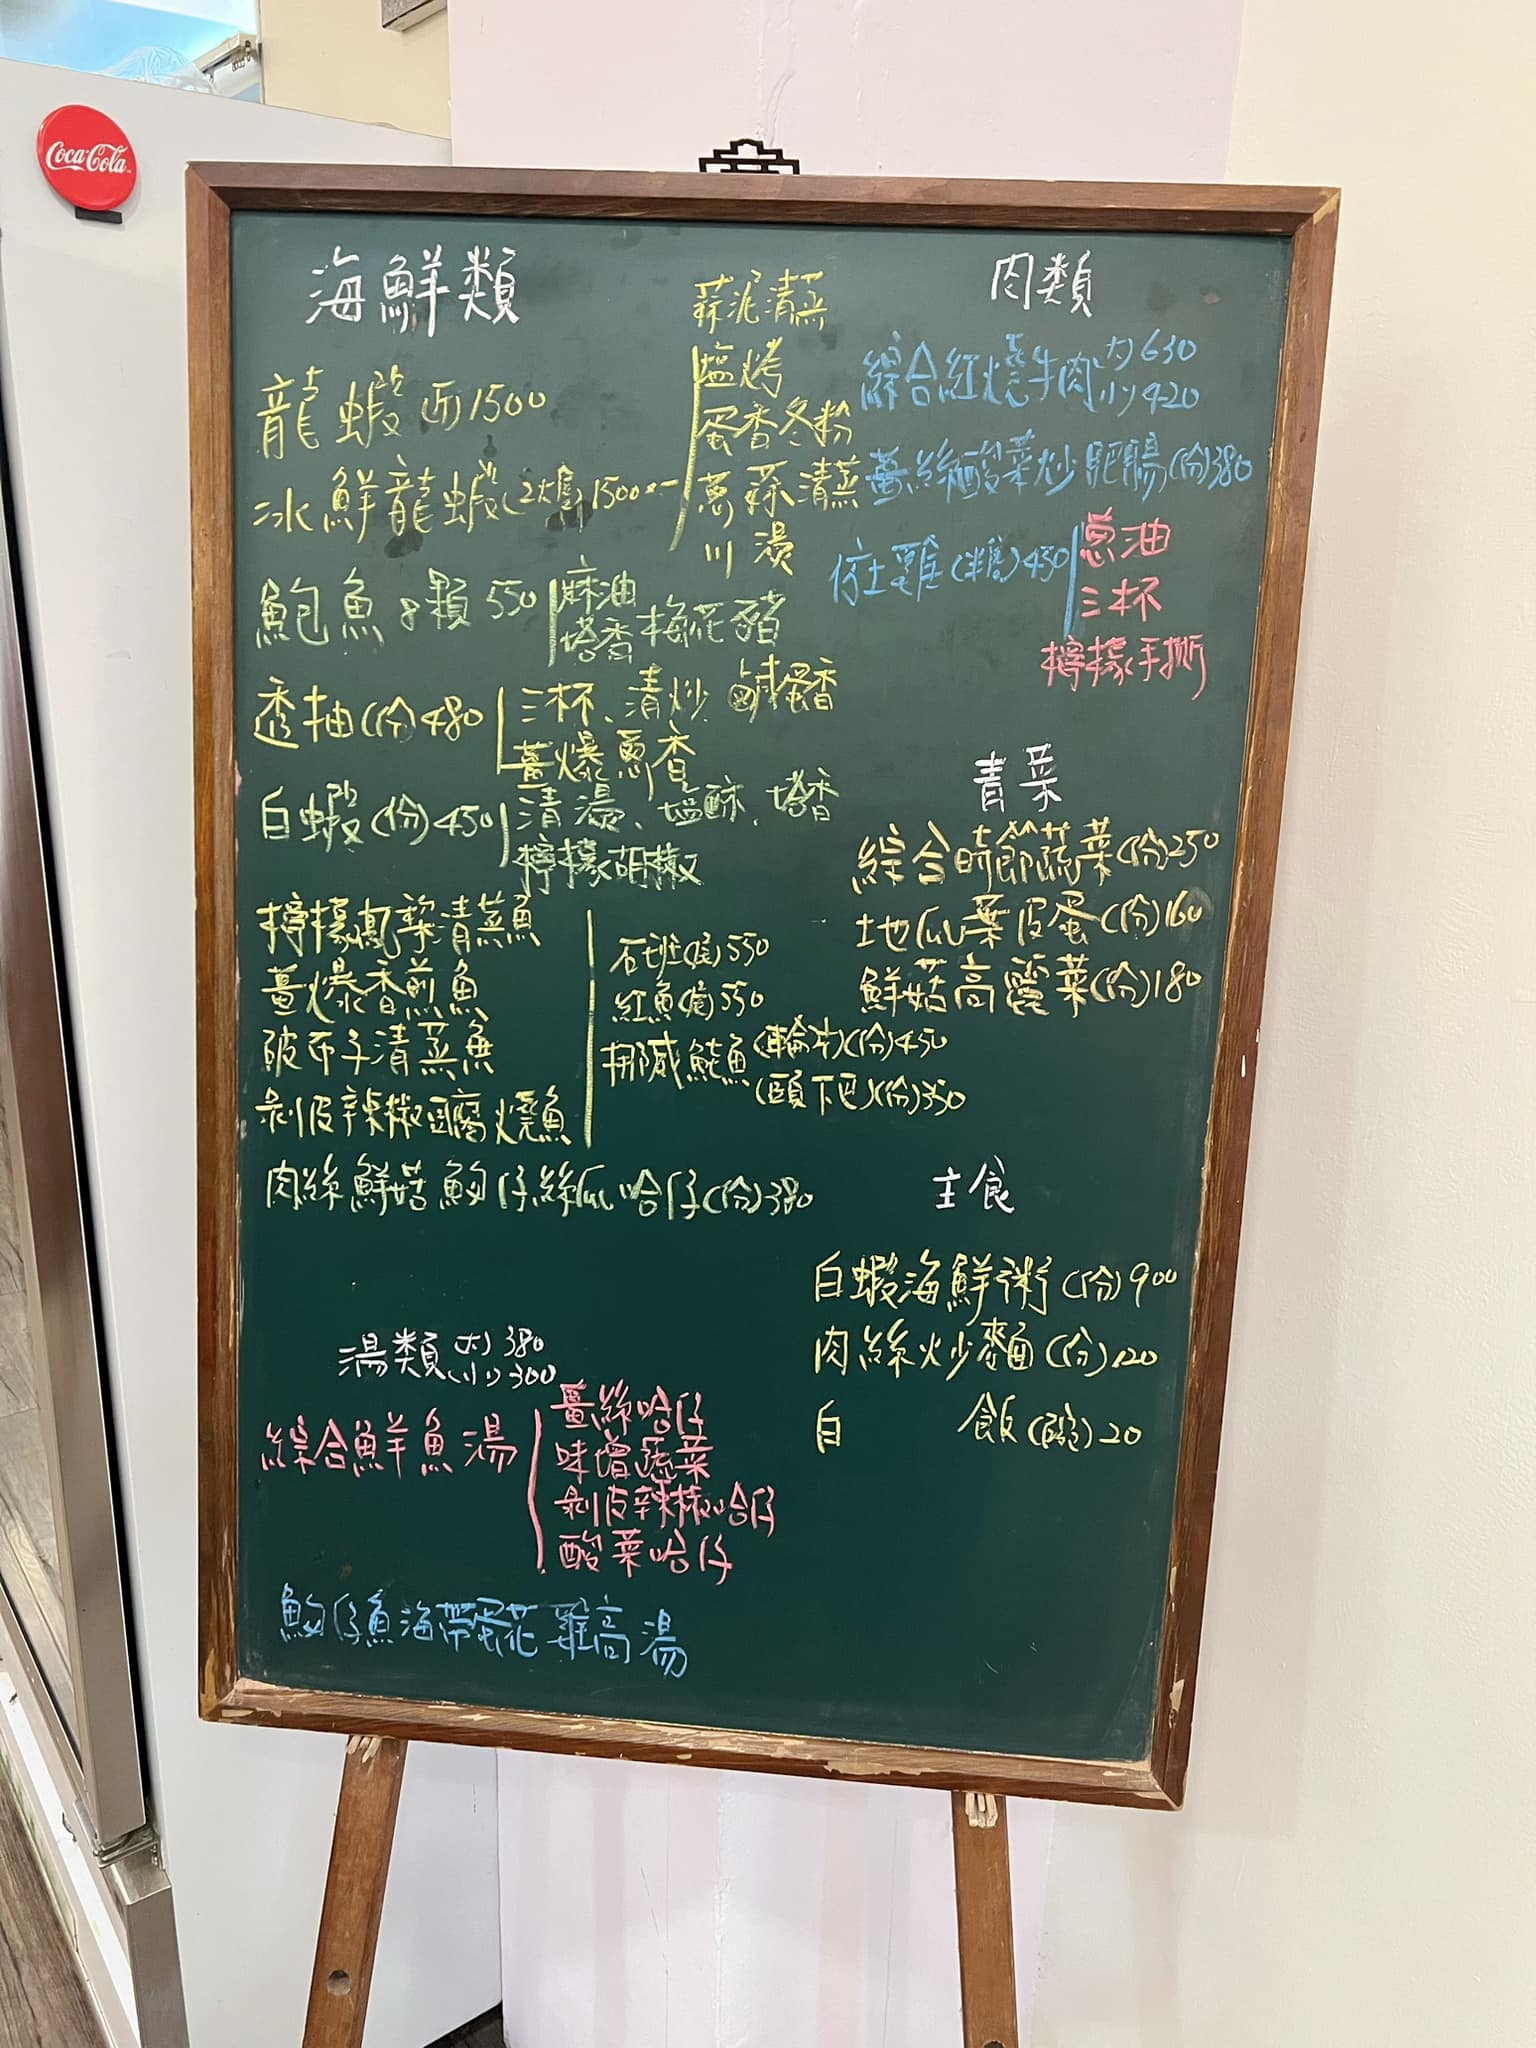 Coca-Cola
海鮮類
龍蝦 1500
冰鮮龍蝦(2大隻)1500
蒜泥清蒸
塩烤
蛋香冬粉
蔥蒜清蒸
川燙
鮑魚8顆550
麻油
塔香梅花豬
透抽(份)480
三杯、清炒 鹹蛋香
薑爆蔥香
白蝦(份)450
清燙、塩酥、塔香
檸檬胡椒
檸檬鳳梨清蒸魚
薑爆香煎魚
破布子清蒸魚
剝皮辣椒豆腐燒魚
石班(尾)550
紅魚(尾)550
挪威鮭魚(輪片)(份)450
(頭下巴)(份)350
肉絲鮮菇魩仔絲瓜哈仔(份)380
湯類(大)380
(小)300
綜合鮮魚湯
薑絲哈仔
味增蔬菜
剝皮辣椒哈仔
酸菜哈仔
魩仔魚海帶蛋花雞高湯
肉類
綜合紅燒牛肉(大)630
(小)420
薑絲酸菜炒肥腸(份)380
仿土雞(半隻)450
蔥油
三杯
檸檬手撕
青菜
綜合時節蔬菜(份)250
地瓜葉皮蛋(份)160
鮮菇高麗菜(份)180
主食
白蝦海鮮粥(份)900
肉絲炒麵(份)120
白飯(碗)20